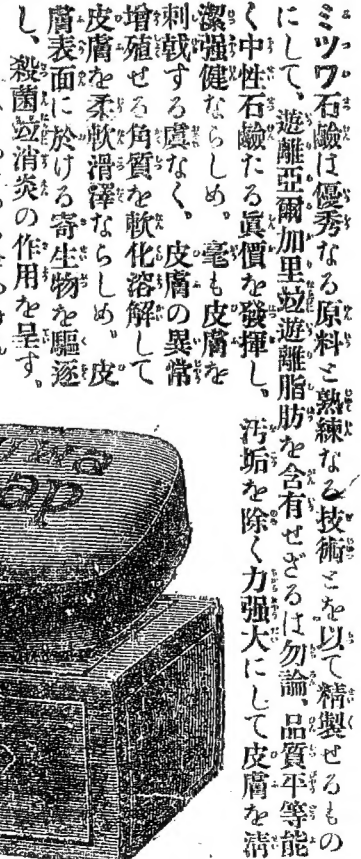 ミツワ石鹼は優秀なる原料と熟練なる技術とを以て精製せるもの
にして、遊離亞爾加里竝遊離脂肪を含有せざるは勿論、品質平等能
く中性石鹼たる眞價を發揮し。汚垢を除く力强大にして皮膚を淸
潔强健ならしめ。毫も皮膚を
刺戟する虞なく。皮膚の異常
增殖せる角質を軟化溶解して
皮膚を柔軟滑澤ならしめ。皮
膚表面に於ける寄生物を驅逐
し、殺菌竝消炎の作用を呈す。